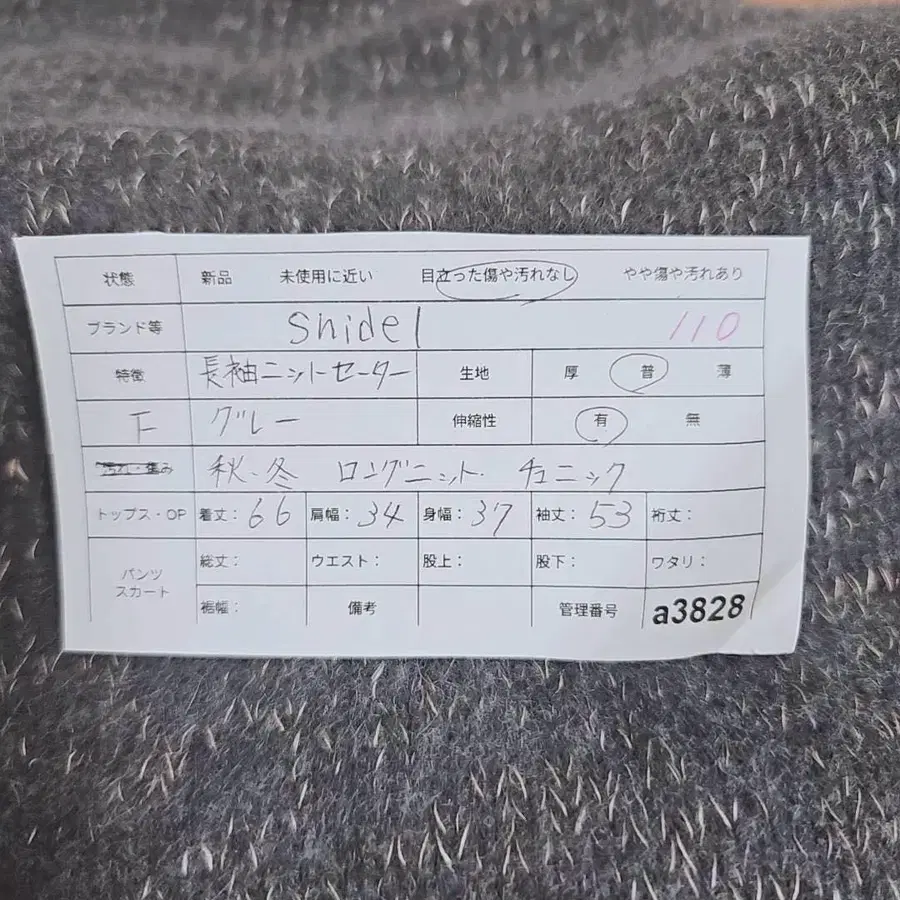 状態 新品 未使用に近い 目立った傷や汚れなし やや傷や汚れあり
ブランド等 snidel 110
特徴 長袖ニットセーター 生地 厚 普 薄
F グレー 伸縮性 有 無
汚れ・傷み 秋、冬 ロングニット. チュニック
トップス・OP 着丈: 66 肩幅: 34 身幅: 37 袖丈: 53 裄丈:
パンツ スカート 総丈: ウエスト: 股上: 股下: ワタリ:
裾幅: 備考 管理番号 a3828